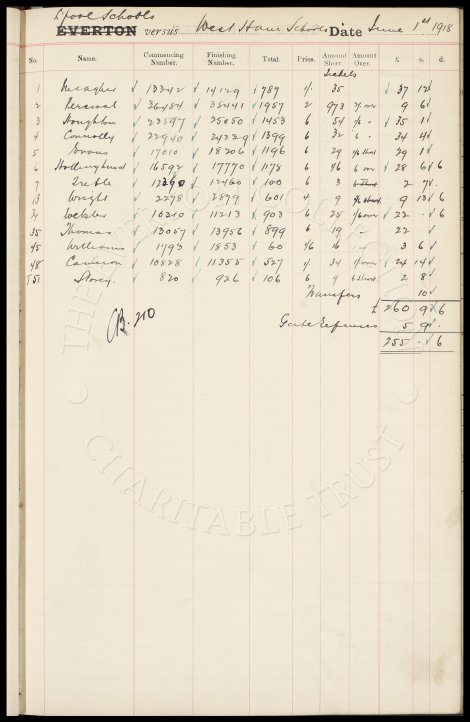 L'pool Schools
EVERTON versus West Ham Schools Date June 1st 1918
No. Name. Commencing Number. Finishing Number. Total. Price. Amount Short. Amount Over. £ s. d.
Tickets
1 Meagher 13342 14129 787 35 37 12
2 Percival 36484 38441 1957 2 973 9 6
3 Houghton 23597 25050 1453 6 54 35 1
4 Connolly 22940 24339 1399 6 32 34 4
5 Evans 17010 18206 1196 6 29 29 1
6 16592 17770 1178 6 46 6 over 28 6 6
7 Treble 12360 12460 100 6 3 2 7
13 Wright 2278 2879 601 9 9 13 6
24 Webster 10310 11213 903 6 25 22 . 6
35 Thomas 13057 13956 899 6 19 22
45 Williams 1793 1853 60 16 3 6
48 Cameron 10828 11355 527 34 24 14
T51 Storey 820 926 106 6 9 2 8
Transfers 10
£ 260 9 6
CB. 210
Gate Expenses 5 9 .
255 . 6
THE EVERTON COLLECTION
CHARITABLE TRUST